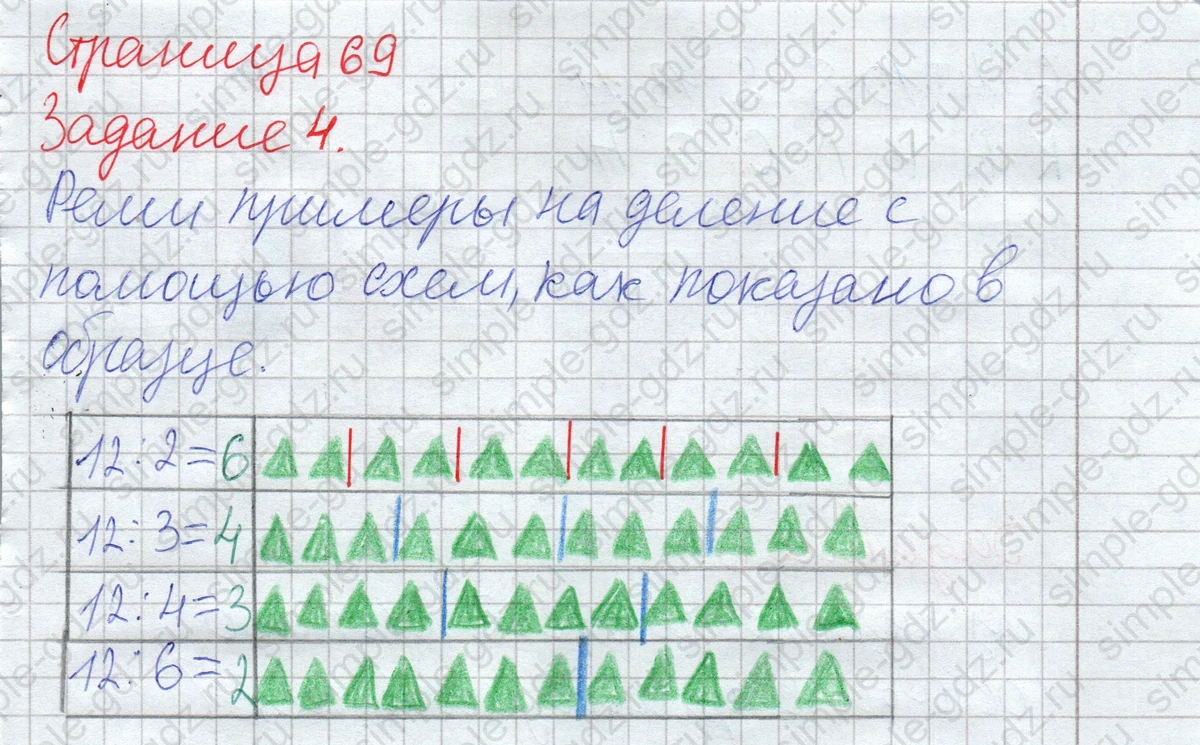 Страница 69
Задание 4.
Реши примеры на деление с
помощью схем, как показано в
образце.
12:2=6
12:3=4
12:4=3
12:6=2
simple-gdz.ru